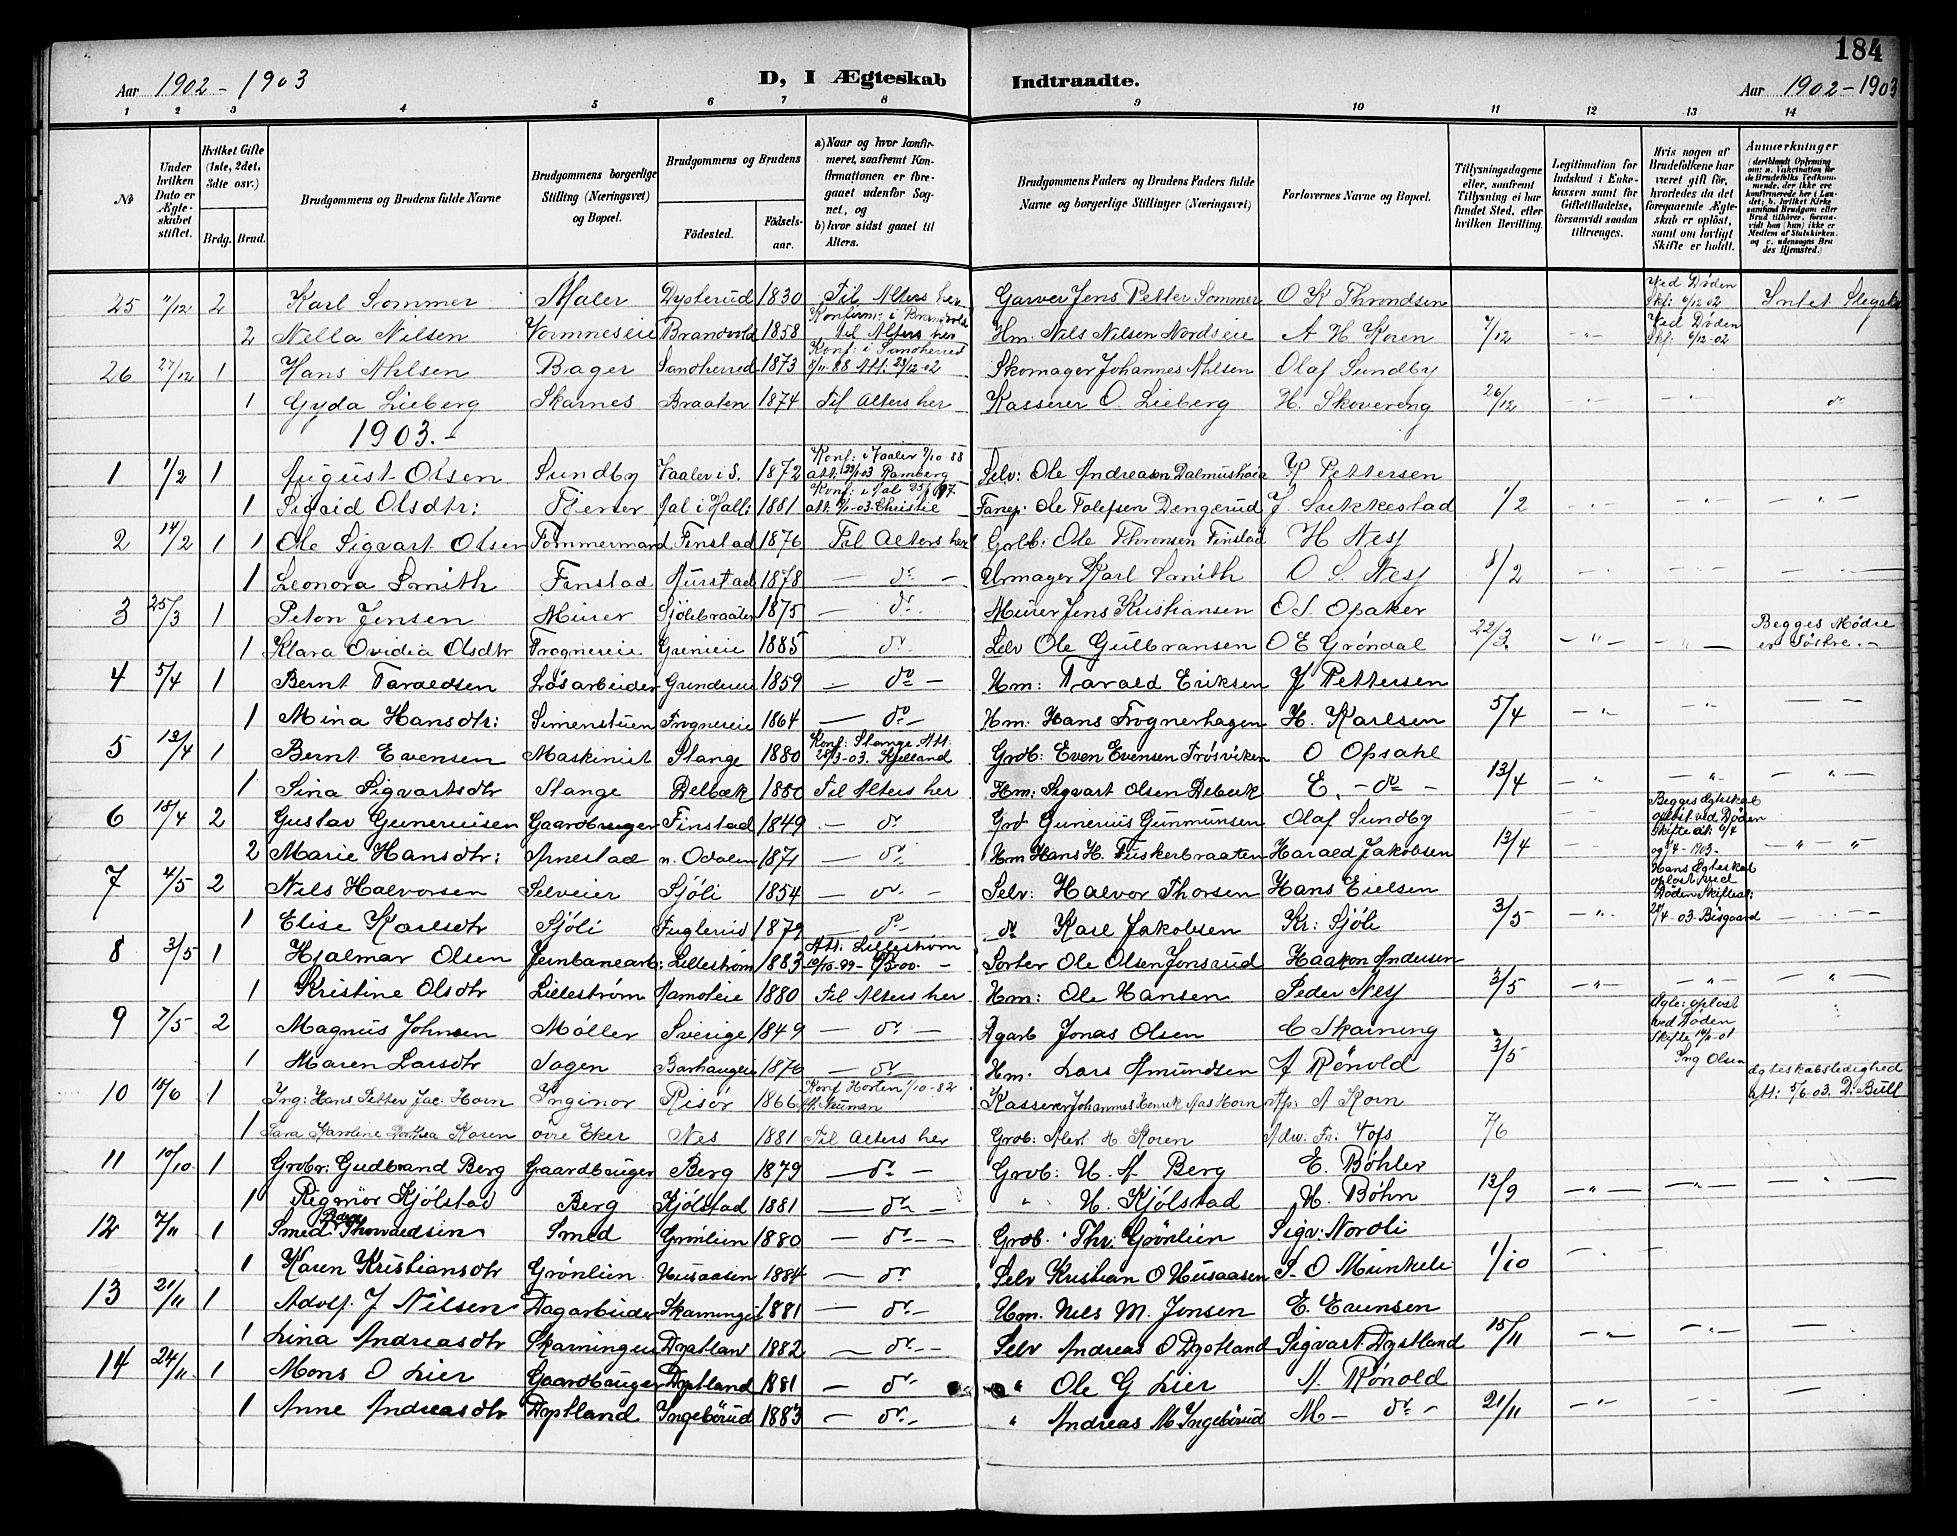 184
Aar 1902 - 1903 D, I Ægteskab Indtraadte. Aar 1902 - 1903
1 2 3 4 5 6 7 8 9 10 11 12 13 14
No
Under hvilken Dato er Ægteskabet stiftet.
Hvilket Gifte (1ste, 2det, 3die osv.)
Brdg. Brud.
Brudgommens og Brudens fulde Navne
Brudgommens borgerlige Stilling (Næringsvei) og Bopæl.
Brudgommens og Brudens
Födested. Födsels-aar.
a) Naar og hvor konfirmeret, saafremt Konfirmationen er foregaaet udenfor Sognet, og
b) hvor sidst gaaet til Alters.
Brudgommens Faders og Brudens Faders fulde Navne og borgerlige Stillinger (Næringsvei)
Forlovernes Navne og Bopæl.
Tillysningsdagene eller, saafremt Tillysning ei har fundet Sted, efter hvilken Bevilling.
Legitimation for Indskud i Enkekassen samt for Giftetilladelse, forsaavidt saadan tiltrænges.
Hvis nogen af Brudefolkene har været gift för, hvorledes da det foregaaende Ægteskab er oplöst, samt om lovligt Skifte er holdt.
Anmærkninger
25 11/12 2 Karl Sommer Maler Dysterud 1830 Til Alters her Garver Jens Petter Sommer O K Throndsen Ved Døden Skf: 6/12 02 Intet Slegtsk
2 Nella Nilsen Vormneseie Brandvold 1858 Konfirm: i Brandvold Til Alters her Hm: Nils Nilsen Nordseie A H Koren 7/12 - " - Ved Døden Skf: 6/12-02
26 27/12 1 Hans Ahlsen Bager Sandherred 1873 Konf: i Sandherred 8/11-88 Att: 23/12-02 Skomager Johannes Ahlsen Olaf Sundby
1 Gyda Lieberg Skarnes Braaten 1874 Til Alters her Kasserer O. Lieberg H. Skovereng 26/12
1903. -
1 1/2 1 August Olsen Sundby Vaaler i S. 1872 Konf: i Vaaler 7/10 88 Ramberg Selv: Ole Andreasen Dalmushaie K Pettersen
1 Sigrid Olsdtr: Tjener Aal i Hall: 1881 Konf: i Aal Christie Ole Tolefsen Dengerud J. Sukkestad 1/2
2 14/2 1 1 Ole Sigvart Olsen Tømmermand Finstad 1876 Til Alters her Ole Thronsen Finstad H Nesj
1 Leonora Smith Finstad Aurstad 1878 - do - Urmager Karl Smith O S. Nesj 8/2
3 25/3 1 Peton Jensen Murer Sjölibraaten 1875 - do. Murer Jens Kristiansen O S. Opaker
1 Klara Ovidia Olsdtr Frogneseie Grenieie 1885 do. Selv Ole Gulbransen O E Gröndal 22/3. - " - Begges Mødre er Søstre. -
4 5/4 1 Bernt Taraldsen Løsarbeider Grundereie 1859 - do - Hm: Tarald Eriksen J Pettersen
1 Mina Hansdtr: Simenstuen Frogneseie 1864 - do - Hm: Hans Frognerhagen H. Karlsen 5/4 - "
5 13/4 1 Bernt Evensen Maskinist Stange 1880 Konf: Stange Att. 28/3-03. Kjelland Grdb: Even Evensen Frösviken O Opsahl
1 Sina Sigvartsdtr Stange Delbæk 1880 Til Alters her Hm: Sigvart Olsen Delbæk E. - do - 13/4 - "
6 18/4 2 Gustav Guneriusen Gaardbruger Finstad 1849 - do Grd Gunerius Gunmunsen Olaf Sundby Begges Ægteskab opløst ved Døden
2 Marie Hansdtr: Arnestad n. Odalen 1871 - do. Hm Hans H. Fuskerbraaten Harald Jakobsen 13/4
7 4/5 2 Nils Halvorsen Selveier Sjöli 1854 - do. - Selv: Halvor Thorsen Hans Eielsen Hans Ægteskab opløst ved Døden Skifteat:
1 Elise Karlsdtr Sjöli Fuglerud 1879 - do - do Karl Jakobsen Kr: Sjöli 3/5 - " - 28/4 - 03. Bisgaard
8 3/5 1 Hjalmar Olsen Jernbanearb: Lillestrøm 1883 Att: Lillestrøm Sorter Ole Olsen Jonsrud Haakon Andersen
1 Kristine Olsdtr Lillestrøm 1880 Til Alters her Hm: Ole Hansen Peder Nesj 3/5 - " -
9 7/5 2 Magnus Johnsen Møller Sverige 1849 - do - Dgarb Jonas Olsen C Skarning Ægte: opløst ved Døden Skifte
1 Maren Larsdtr Sagen Barhaugeie 1870 - do Hm. Lars Amundsen A Rönold 3/5 Ing Olsen
10 18/6 1 Ing: Hans Petter Jac: Horn Inginør Risör 1866 Konf Horten 1/10-82 Neuman Kasserer Johannes Henrik Aas Horn Ap: A Korn Ægteskabsledighed att: 5/6-03. D: Bull
1 Sara Karoline Dorthea Koren øvre Eker Nes 1881 Til Alters her Grdb: Albert H. Koren Adv: Fr: Tofs 7/6
11 10/10 1 Grdbr: Gudbrand Berg Gaardbruger Berg 1879 - do - Grdb: H. A. Berg E. Böhler
1 Regmor Kjölstad Berg Kjölstad 1881 - do - " H. Kjölstad H. Böhn 13/9 - " -
12 7/11 1 Smed Thorvaldsen Smed Grönlien 1880 - do - Grdb. Thr: Grönlien Sigv: Nordli
1 Karen Kristiansdtr Grönlien Husaasen 1884 - do Selv Kristian O Husaasen S. O Munkeli 1/10
13 21/11 1 Adolf. J Nilsen Dagarbeider Skarninge 1881 - do - Hm. Nils M. Jonsen E. Evensen
1 Lina Andreasdtr Skarningeie Dystland 1882 - do - Selv Andreas O Dystland Sigvart Dystland 15/11 - " -
14 24/11 1 Mons O Lier Gaardbruger Dystland 1881 - do - " Ole G Lier A. Rönold
1 Anne Andreasdtr Dystland Ingebörud 1883 - do - " Andreas M Ingebörud M - do - 21/11 - " -